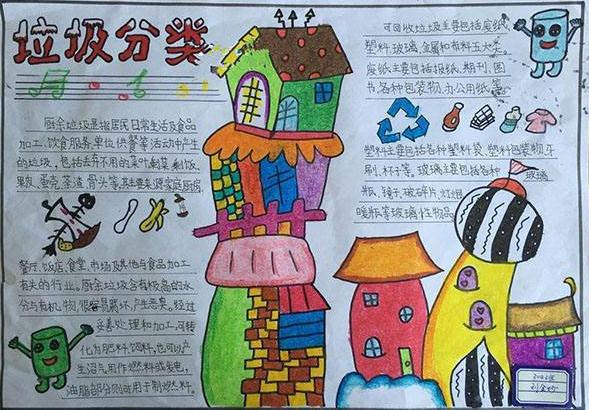 垃圾分类
厨余垃圾是指居民日常生活及食品
加工、饮食服务、单位供餐等活动中产生
的垃圾，包括丢弃不用的菜叶、剩菜、剩饭、
果皮、蛋壳、茶渣、骨头等，其主要来源家庭厨房
餐厅、饭店、食堂、市场及其他与食品加工
有关的行业。厨余垃圾含有极高的水
分与有机物，很容易腐坏，产生恶臭。经过
妥善处理和加工，可转
化为肥料、饲料，也可以产
生沼气用作燃料或发电，
油脂部分则可用于制燃料。
可回收垃圾主要包括废纸、
塑料、玻璃、金属和布料五大类。
废纸主要包括报纸、期刊、图
书、各种包装物、办公用纸
塑料主要包括各种塑料袋、塑料包装物、牙
刷、杯子等。玻璃主要包括各种玻璃
瓶、镜子、破碎片、灯泡
暖瓶等玻璃性物品